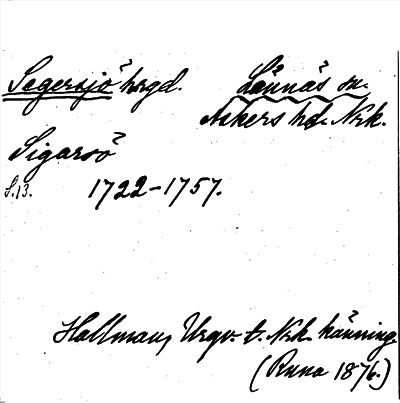 Segersjö hrgd. Lännäs sn.
Askers hd. Nrk.
Sigarsö
S.13. 1722-1757.
Hallman, Urgv. t. Nrk. känning
(Runa 1876.)